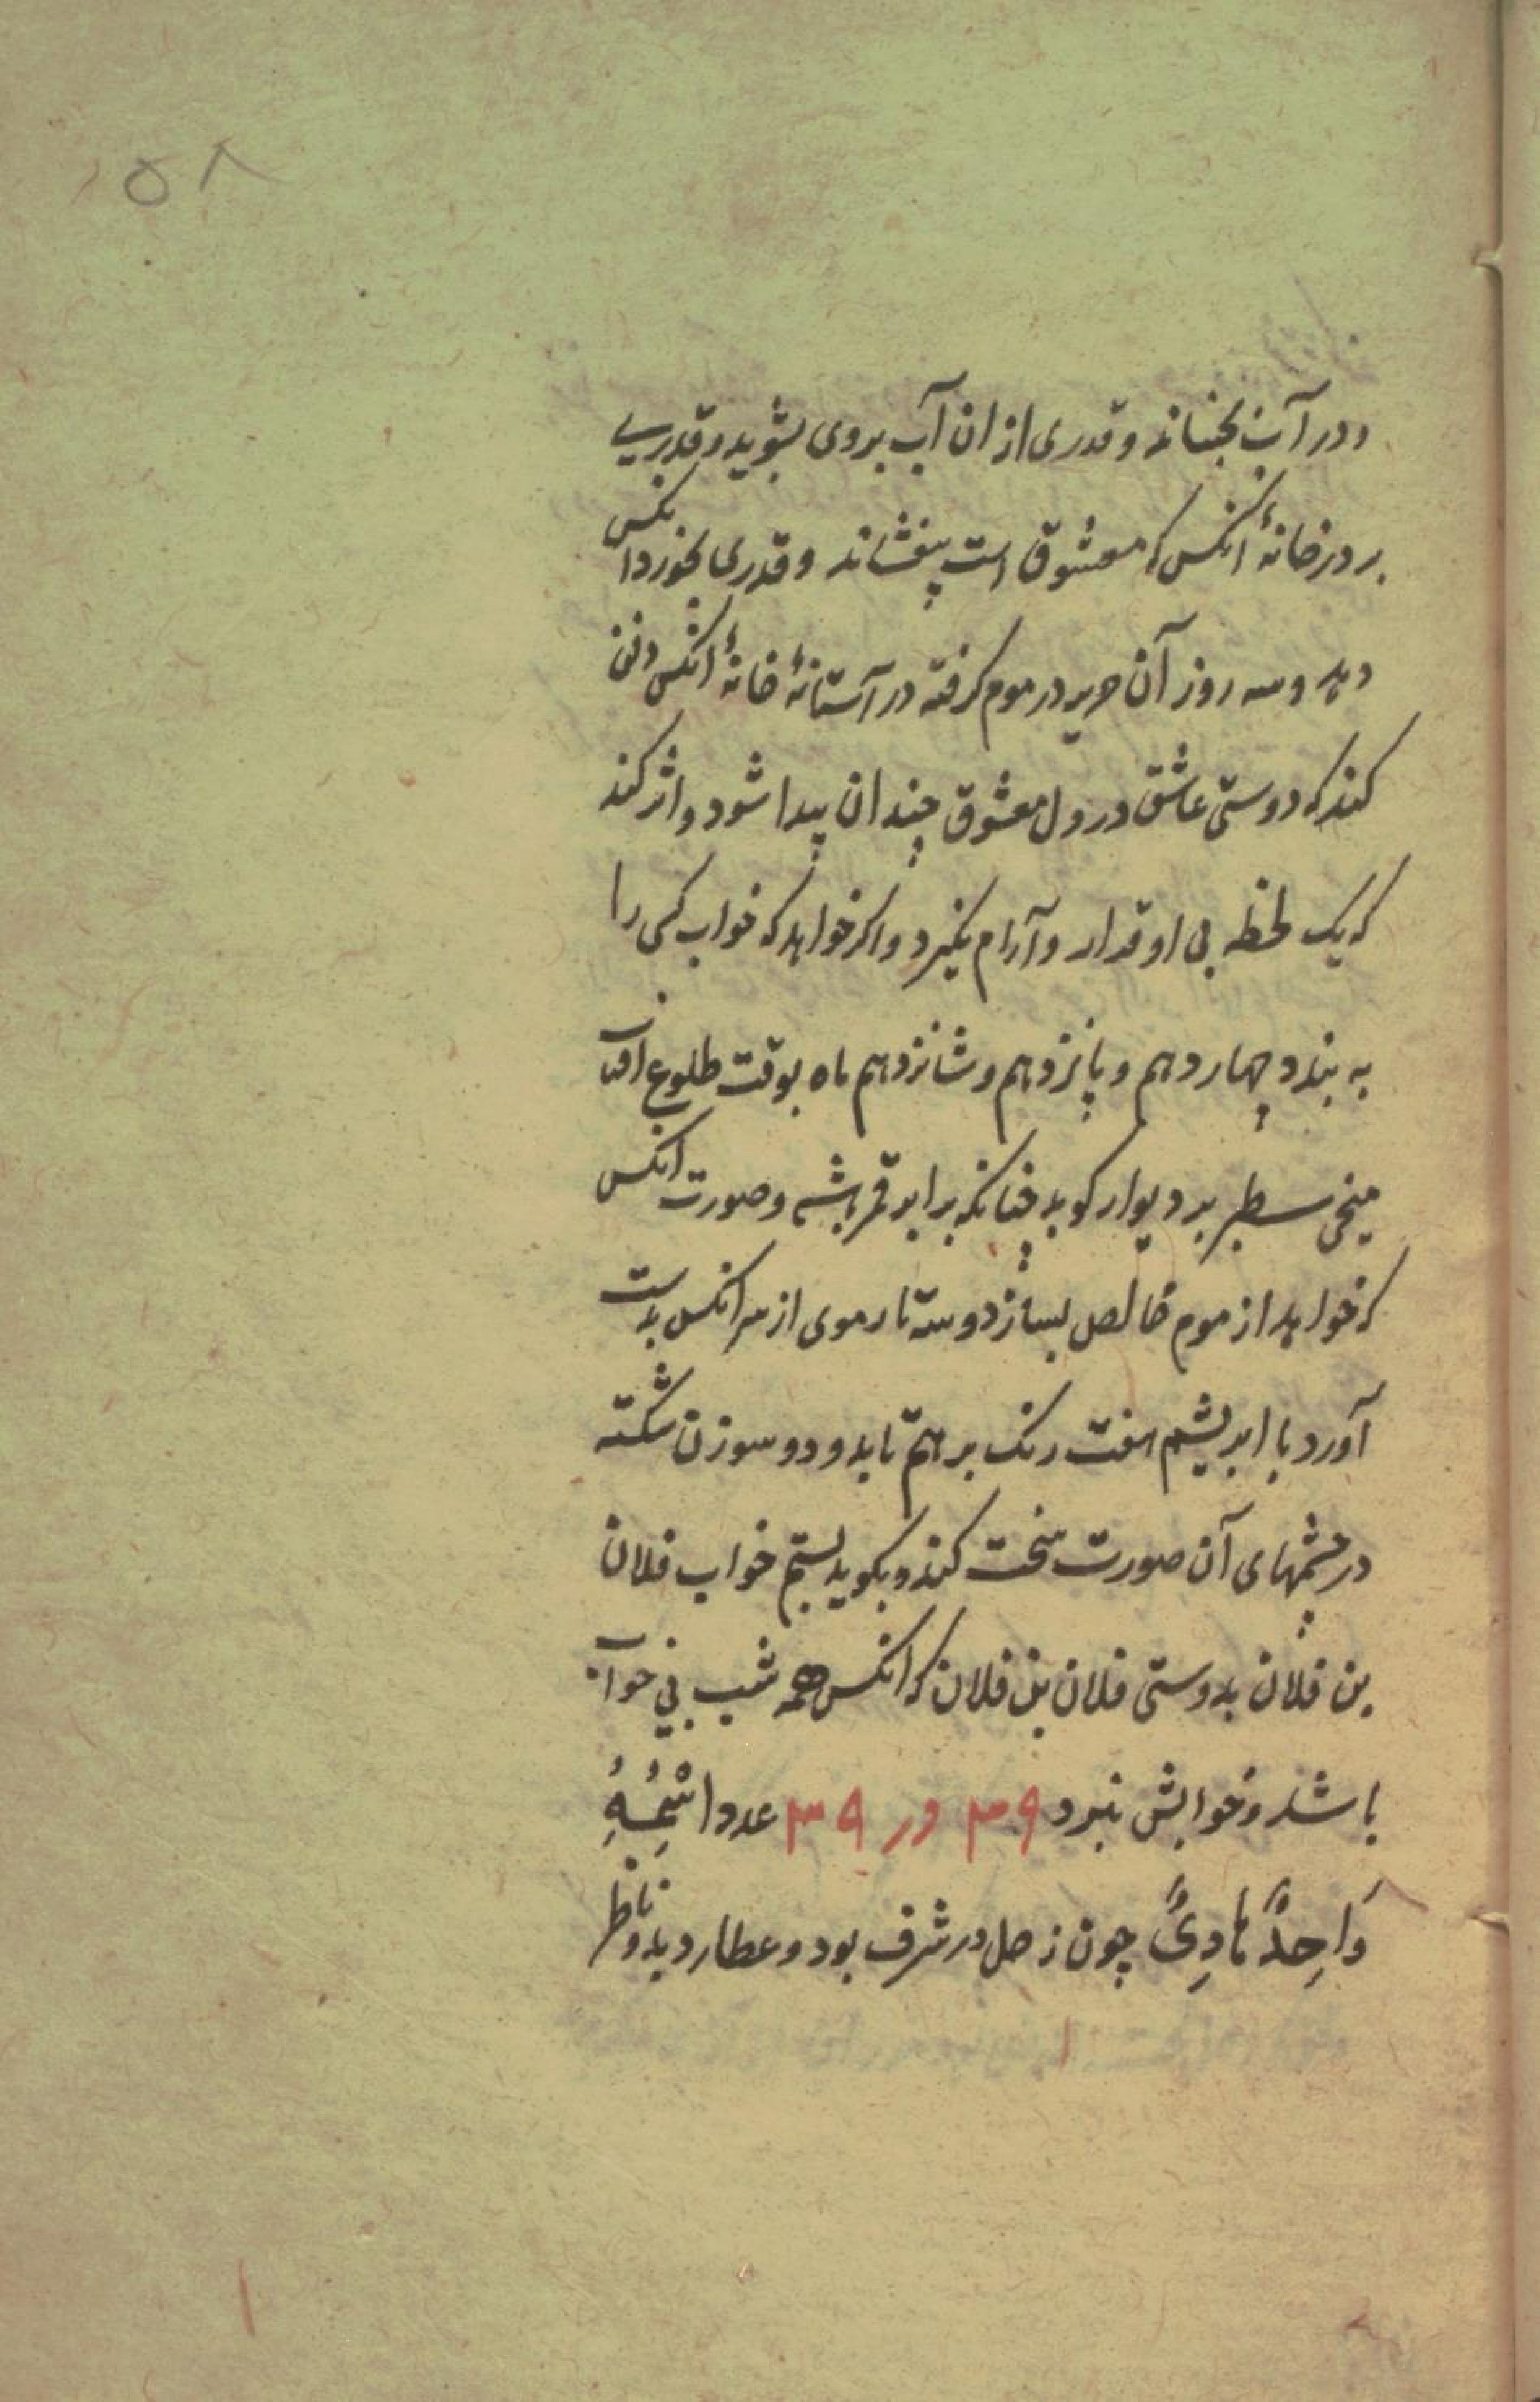 ۵۸
و در آب بجنباند و قدری از ان آب بروی بشوید و قدری
بر در خانهٔ انکس که معشوق است بیفشاند و قدری بخورد انکس
دهد و سه روز آن حریر در موم کرفته در آستانهٔ خانهٔ انکس دفن
کند که دوستی عاشق در دل معشوق چندان پیدا شود و اثر کند
که یک لحظه بی او قرار و آرام نکیرد و اکر خواهد که خواب کسی را
به بندد چهاردهم و پانزدهم و شانزدهم ماه بوقت طلوع افتاب
میخی سطبر بر دیوار کوبد چنانکه برابر قمر باشد و صورت انکس
که خواهد از موم خالص بسازد و سه تار موی از سر انکس بدست
آورد با ابریشم هفت رنک بر هم تابد و دو سوزن شکسته
در چشمهای آن صورت سخت کند و بکوید بستم خواب فلان
بن فلان بدوستی فلان بن فلان که انکس همه شب بی خواب
باشد و خوابش نبرد ۳۹ در ۳۹ عدد اسْمُهُ
وَاحِدٌ هَادِیٌ چون زحل در شرف بود و عطارد بدو ناظر